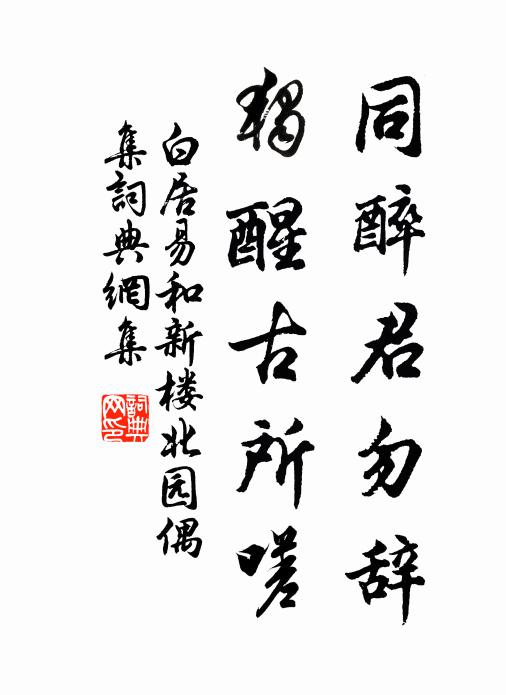 同醉君勿辞
独醒古所嗟
白居易和新楼北园偶
集詞典網集
詞典
网印